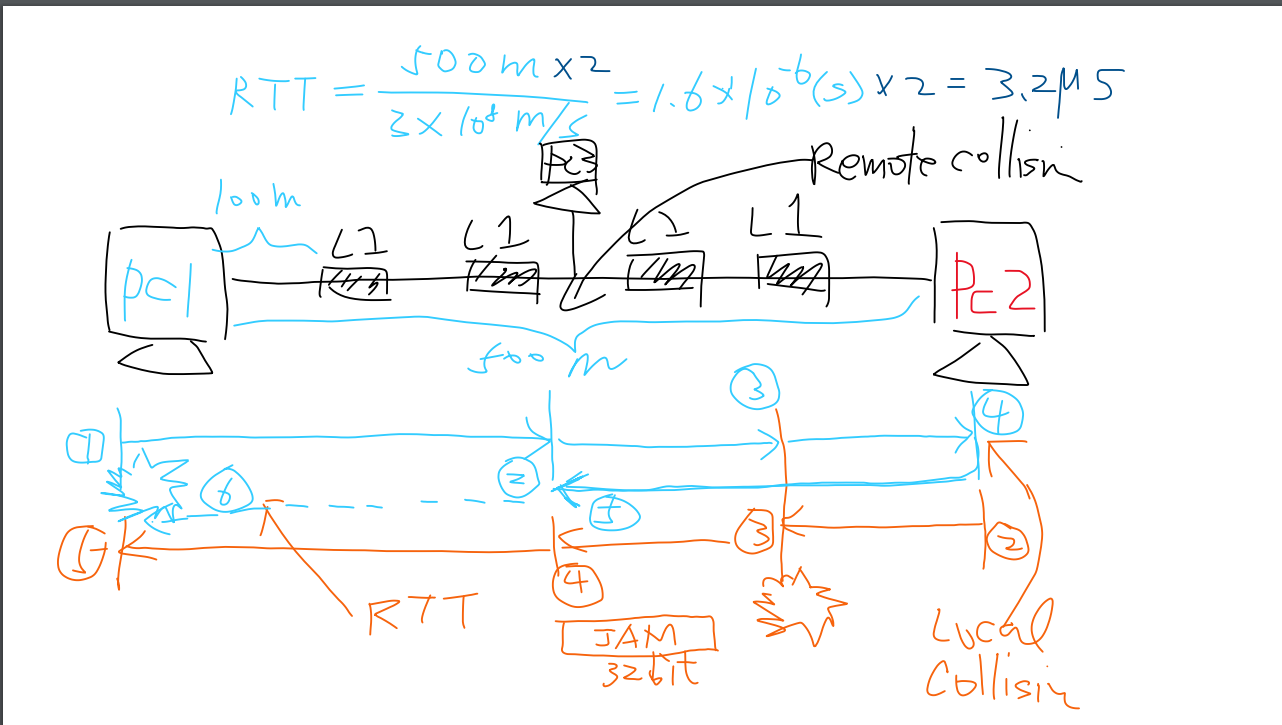 RTT = 500m x2 / 3 x 10⁸ m/s = 1.6 x 10⁻⁶(s) x 2 = 3.2μs
PC3
Remote collisin
100m
L1 L1 L1 L1
PC1
PC2
500 m
③
① ② ④
⑥ ⑤
③ ②
⑤ ④
RTT
JAM
32bit
Local
Collisin